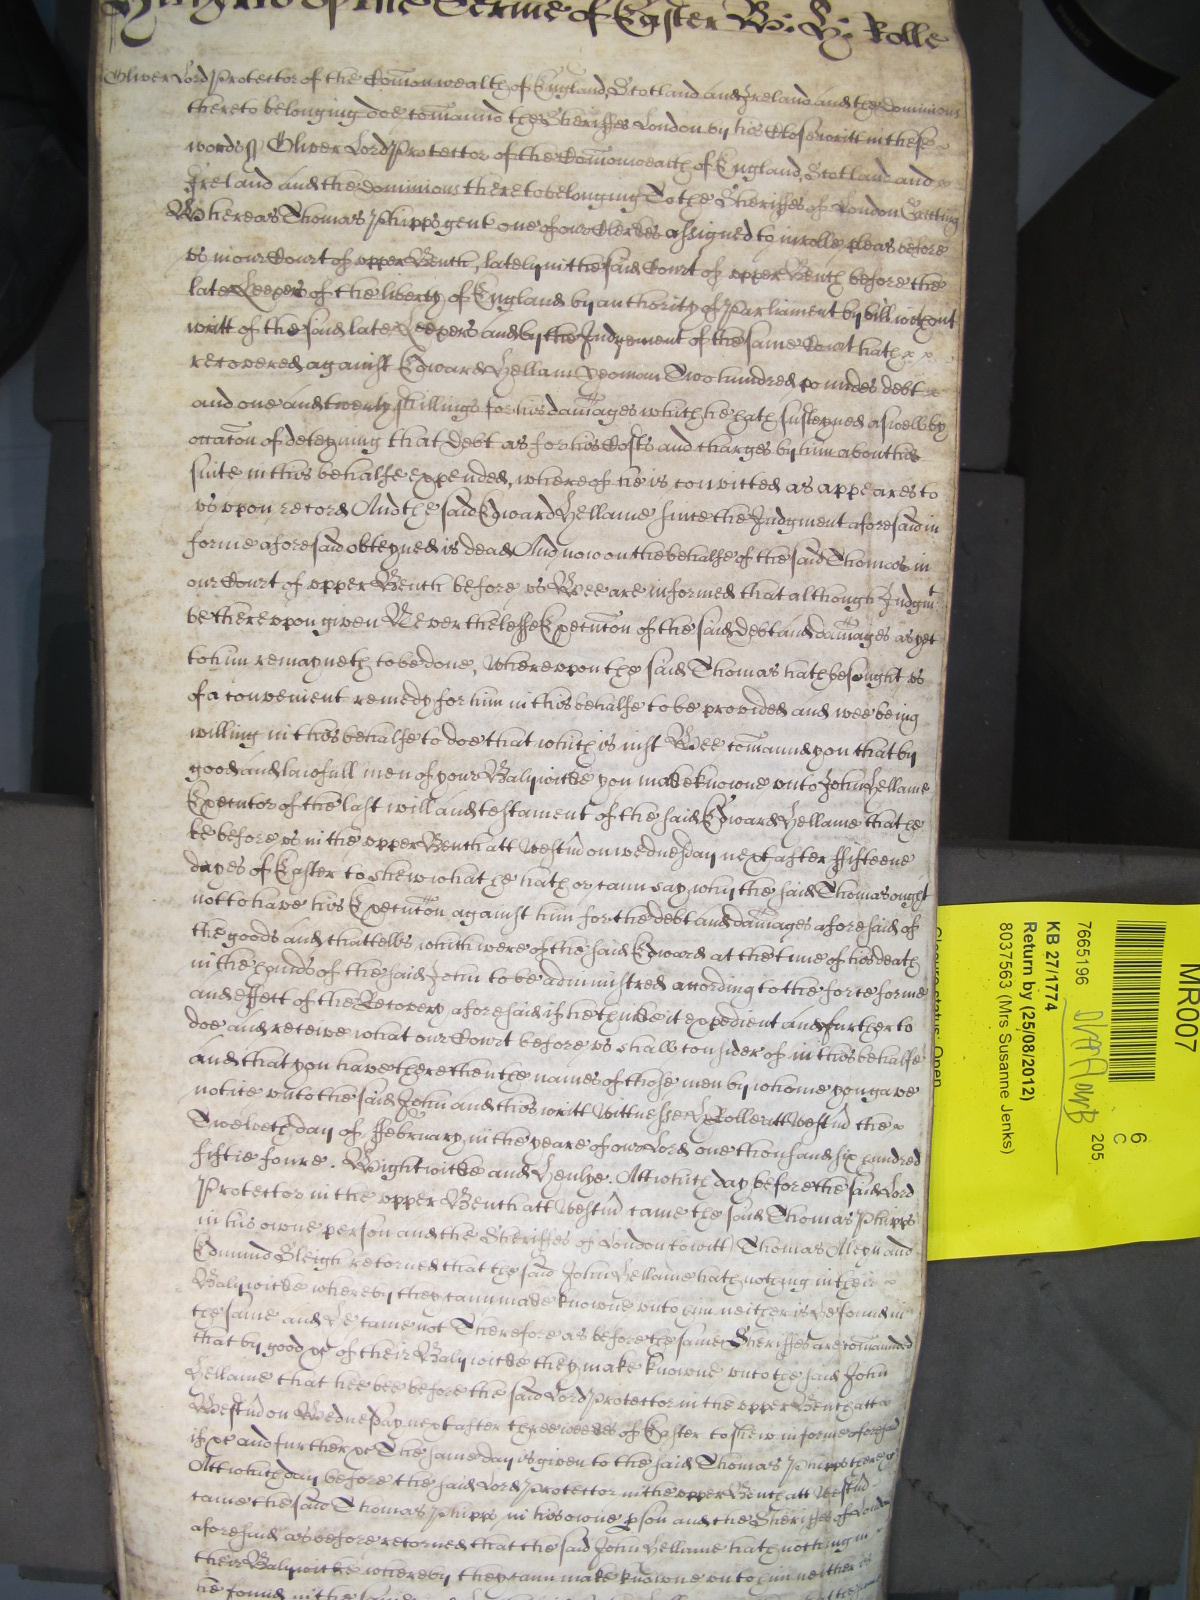 of the Terme of Easter W: H: Rolle
Oliver Lord Protector of the Comonwealth of England, Scotland and Ireland and the Dominions
thereto belonging doe comannd the Sheriffes London by his Close writt in these
words ss Oliver Lord Protector of the Comonwealth of England, Scotland and
Ireland and the dominions thereto belonging To the Sheriffes of London Greeting
Whereas Thomas Phipps gent one of our Clerkes assigned to inrolle pleas before
us in our Court of upper Bench, lately in the said Court of upper Bench before the
late Keepers of the liberty of England by authority of Parliament by bill without
writt of the said late Keepers and by the Judgement of the same Court hath
recovered against Edward Hellam yeoman Two hundred poundes debt
and one and twenty shillings for his damages which he hath susteyned aswell by
occacon of deteyning that Debt as for his Costs and charges by him about his
suite in this behalfe expended, whereof he is convicted as appeares to
us upon record And the said Edward Hellame since the Judgment aforesaid in
forme aforesaid obteyned is dead And now on the behalfe of the said Thomas in
our Court of upper Bench before us Wee are informed that although Judgmt
be thereupon given Neverthelesse Execucon of the said Debt and damages as yet
to him remayneth to be done, Whereupon the said Thomas hath besought us
of a convenient remedy for him in this behalfe to be provided and wee being
willing in this behalfe to doe that which is just Wee comannd you that by
good and lawfull men of your Balywicke you make knowne unto John Hellame
Executor of the last will and testament of the said Edward Hellame that he
be before us in the upper Bench att Westm on wednesday next after fifteene
dayes of Easter to shew what he hath or cann say, why the said Thomas ought
not to have his Execucon against him for the debt and damages aforesaid of
the goods and chattells which were of the said Edward at the time of his death
in the hands of the said John to be administred according to the force forme
and effect of the Recovery aforesaid if hee thinke it expedient and further to
doe and receive what our Court before us shall consider of in this behalfe
And that you have there then the names of those men by whome you gave
notice unto the said John and this writt Wittnesse H Rolle att Westm the
Twelveth day of ffebruary, in the yeare of our Lord one thousand six hundred
fiftie foure. Wightwicke and Henley. Att which day before the said Lord
Protector in the upper Bench att Westm came the said Thomas Phipps
in his owne person and the Sheriffes of London to witt) Thomas Aleyn and
Edmund Sleigh returned that the said John Hellame hath nothing in their
Balywicke whereby they cann make knowne unto him neither is he found in
the same and he came not Therefore as before the same Sheriffes are comannded
that by good &c of their Balywicke they make knowne unto the said John
Hellame that hee bee before the said Lord Protector in the upper Bench att
Westm on Wednesday next after three weekes of Easter to shew in forme aforesaid
if &c and further &c The same day is given to the said Thomas Phipps there &c
Att which day before the said Lord Protector in the upper Bench att Westm
came the said Thomas Phipps in his owne pson and the Sheriffes of London
aforesaid as before returned that the said John Hellame hath nothing in
their Balywicke whereby they cann make knowne unto him neither is
he found in the same
MR007
6
C
205
7665196
KB 27/1774
Return by (25/08/2012)
8037563 (Mrs Susanne Jenks)
Closure status: Open